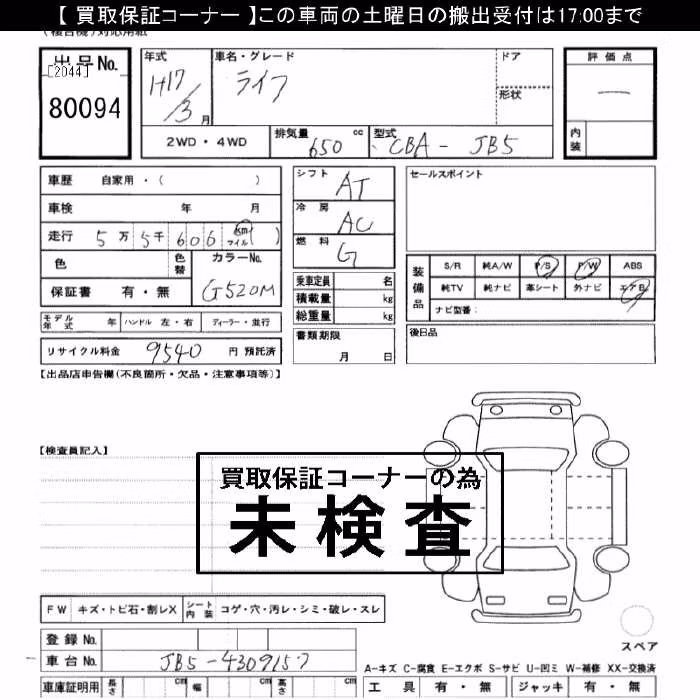 【 買取保証コーナー 】この車両の土曜日の搬出受付は17:00まで
(複合機)対応用紙
出品No.
[2044]
80094
年式
H17/3 月
車名・グレード
ライフ
ドア
形状
評価点
—
内装
2WD・4WD
排気量 650 cc
型式 CBA - JB5
車歴 自家用・( )
車検 年 月
走行 5万 5千 606 km マイル ( )
色
色替
カラーNo.
G520M
保証書 有・無
シフト AT
冷房 AC
燃料 G
乗車定員 名
積載量 kg
総重量 kg
書類期限
月 日
セールスポイント
装備品
S/R 純A/W P/S P/W ABS
純TV 純ナビ 革シート 外ナビ エアB
ナビ型番:
後日品
モデル年式 年 ハンドル 左・右 ディーラー・並行
リサイクル料金 9540 円 預託済
【出品店申告欄(不良箇所・欠品・注意事項等)】
【検査員記入】
買取保証コーナーの為
未検査
FW キズ・トビ石・割レX シート内装 コゲ・穴・汚レ・シミ・破レ・スレ
スペア
登録 No.
車台 No. JB5-4309157
A−キズ C−腐食 E−エクボ S−サビ U−凹ミ W−補修 XX−交換済
車庫証明用 長さ cm 幅 cm 高さ cm
工具 有・無 ジャッキ 有・無